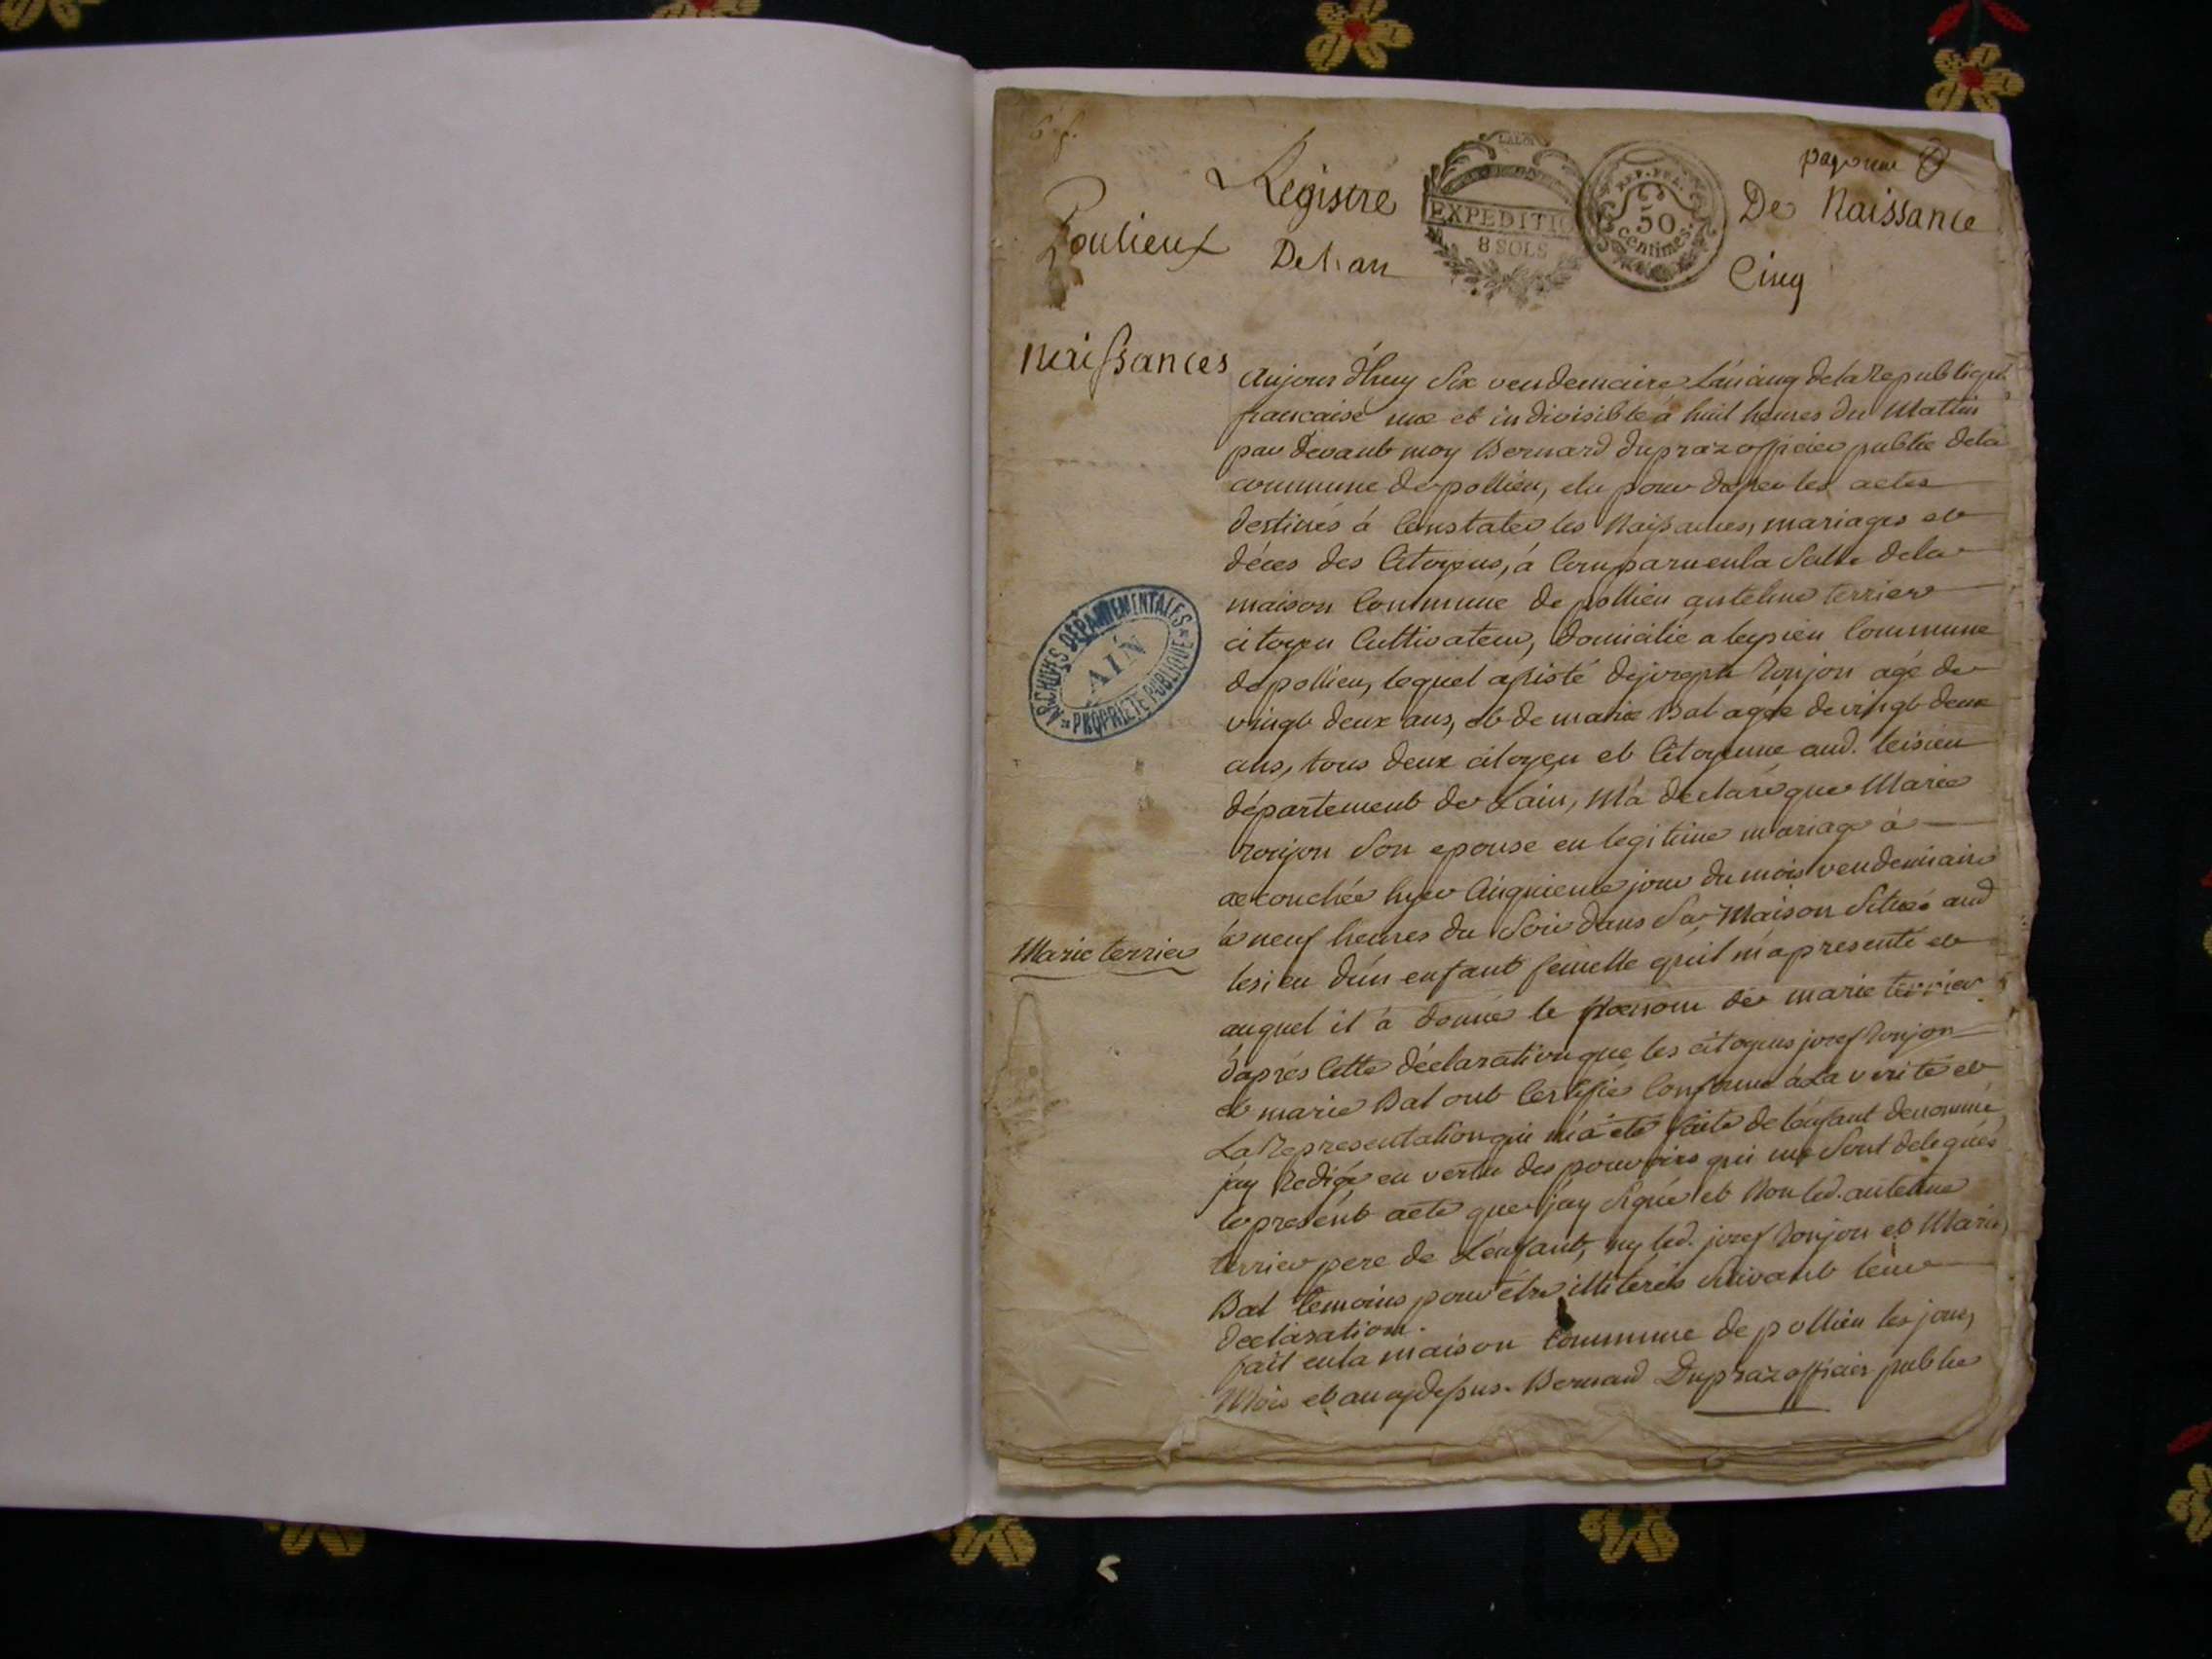 page une
Registre De Naissance
Poulieux De l'an Cinq
LA LOI
EXPEDITIO
8 SOLS
REP. FRA.
50
centimes.
naissances
aujourd'huy six vendemiaire l'an cinq de la Republique
francaise une et indivisible à huit heures du Mattin
par devant moy Bernard dupraz officier public dela
commune de pollieu, elu pour dreser les actes
destinés à Constater les Naissances, mariages et
déces des Citoyens, à Comparu en la Salle dela
maison Commune de pollieu antelme terrier
citoyen Cultivateur, domicilie a leysieu Commune
de pollieu, lequel assisté de joseph Roujon agé de
vingt deux ans, et de marie Bal agée de vingt deux
ans, tous deux citoyen et Citoyenne aud. leisieu
département de Lain, M'a declaré que Marie
roujon Son epouse en legitime mariage à
accouchée hyer Cinquieme jour du mois vendemiaire
à neuf heures du Soir dans Sa Maison Situeé aud
lesieu d'un enfant femelle qu'il m'a presenté et
auquel il à donné le prenom de marie terrier
d'aprés Cette déclaration que les citoyens josef Roujon
et marie Bal ont Certifié Conforme à La verité et
La Representation qui m'a eté faite de lenfant denommé
j'ay Redigé en vertu des pouvoirs qui me Sont delegués
le present acte que j'ay Signé et Non led. antelme
terrier pere de L'enfant, ny led. josef Roujon et Marie
Bal temoins pour étre illiterés Suivant leur
declaration.
fait en la maison Commune de pollieu les jour,
Mois et an cy dessus. Bernard Dupraz officier public
Marie terrier
ARCHIVES DÉPARTEMENTALES
AIN
* PROPRIÉTÉ PUBLIQUE *